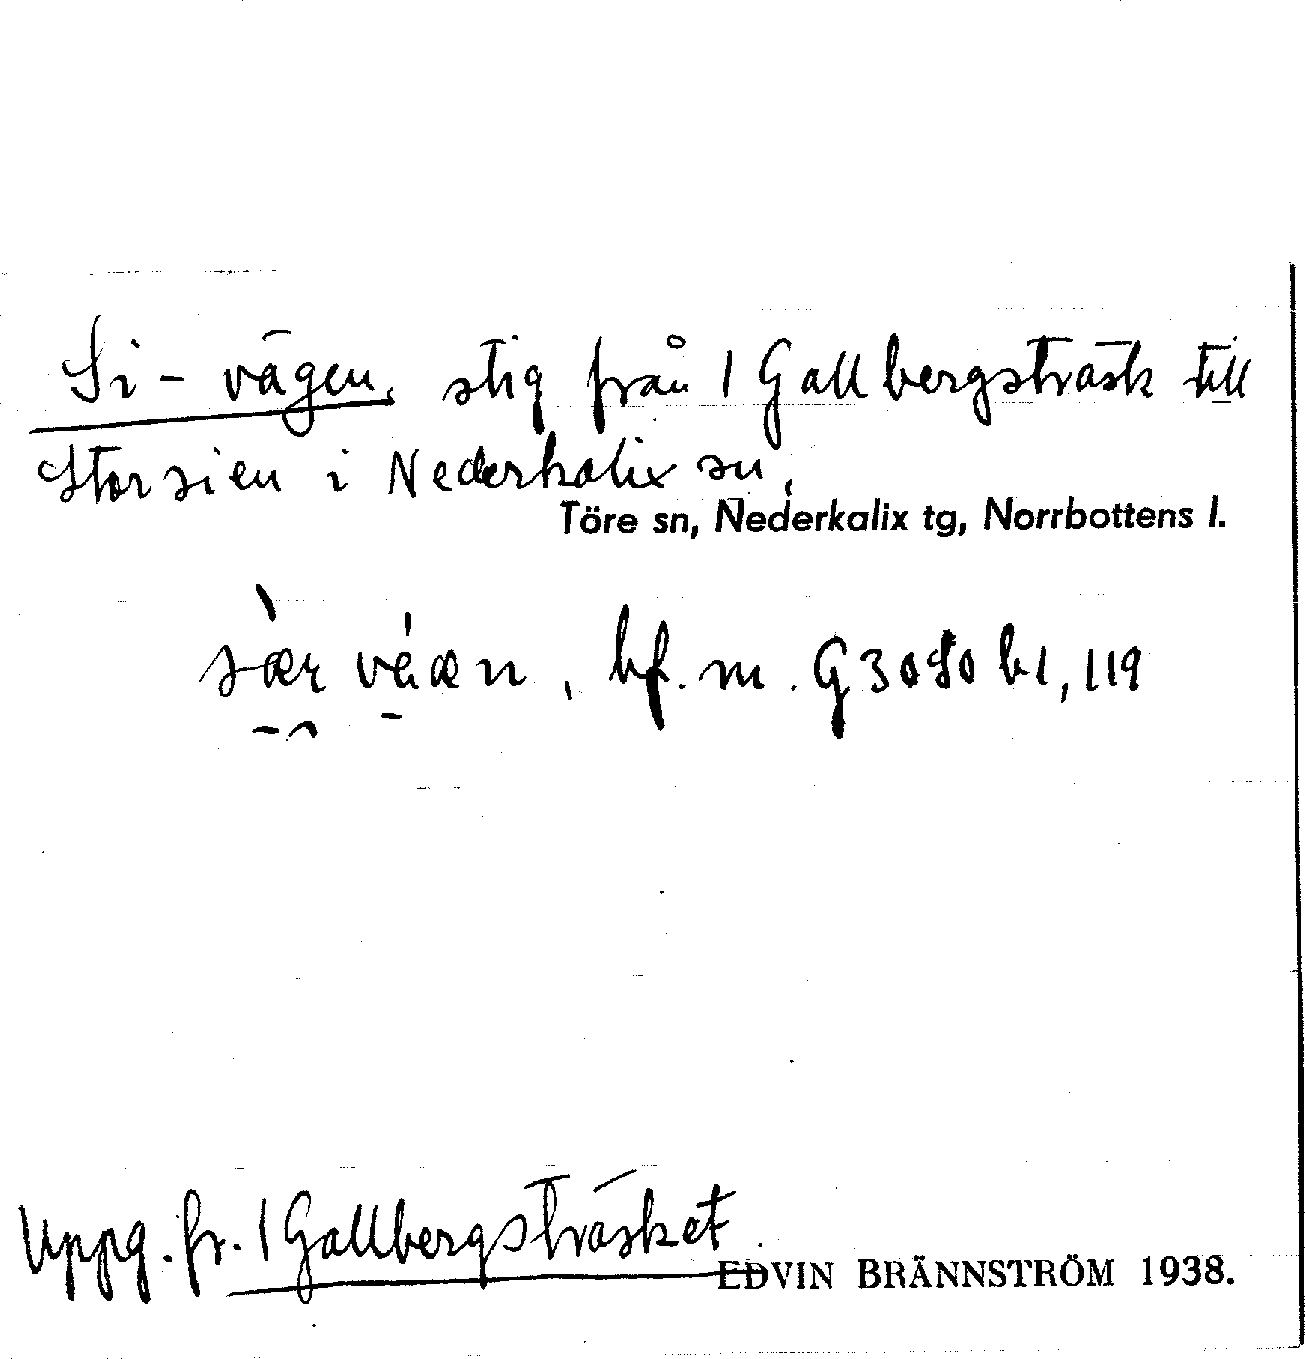 Si-vägen, stig från 1 Gallbergsträsk till
Storsien i Nederkalix sn,
Töre sn, Nederkalix tg, Norrbottens l.
bf. m. G 3080 bl, 119
Uppg. fr. 1 Gallbergsträsket.
EDVIN BRÄNNSTRÖM 1938.